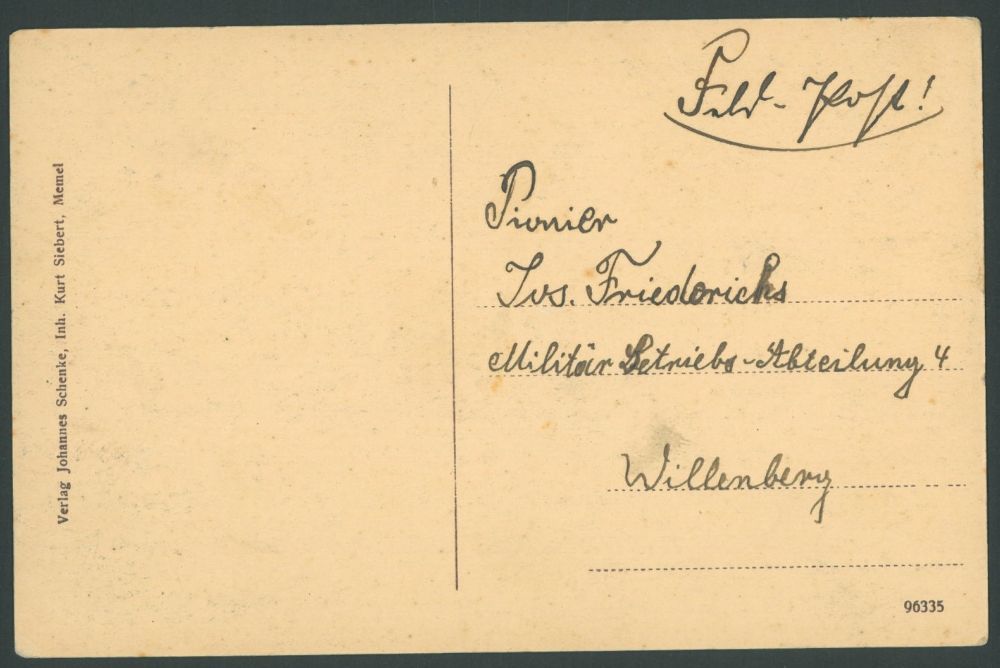 Feld-Post!
Pionier
Jos. Friederichs
Militär Betriebs-Abteilung 4
Willenberg
96335
Verlag Johannes Schenke, Inh. Kurt Siebert, Memel